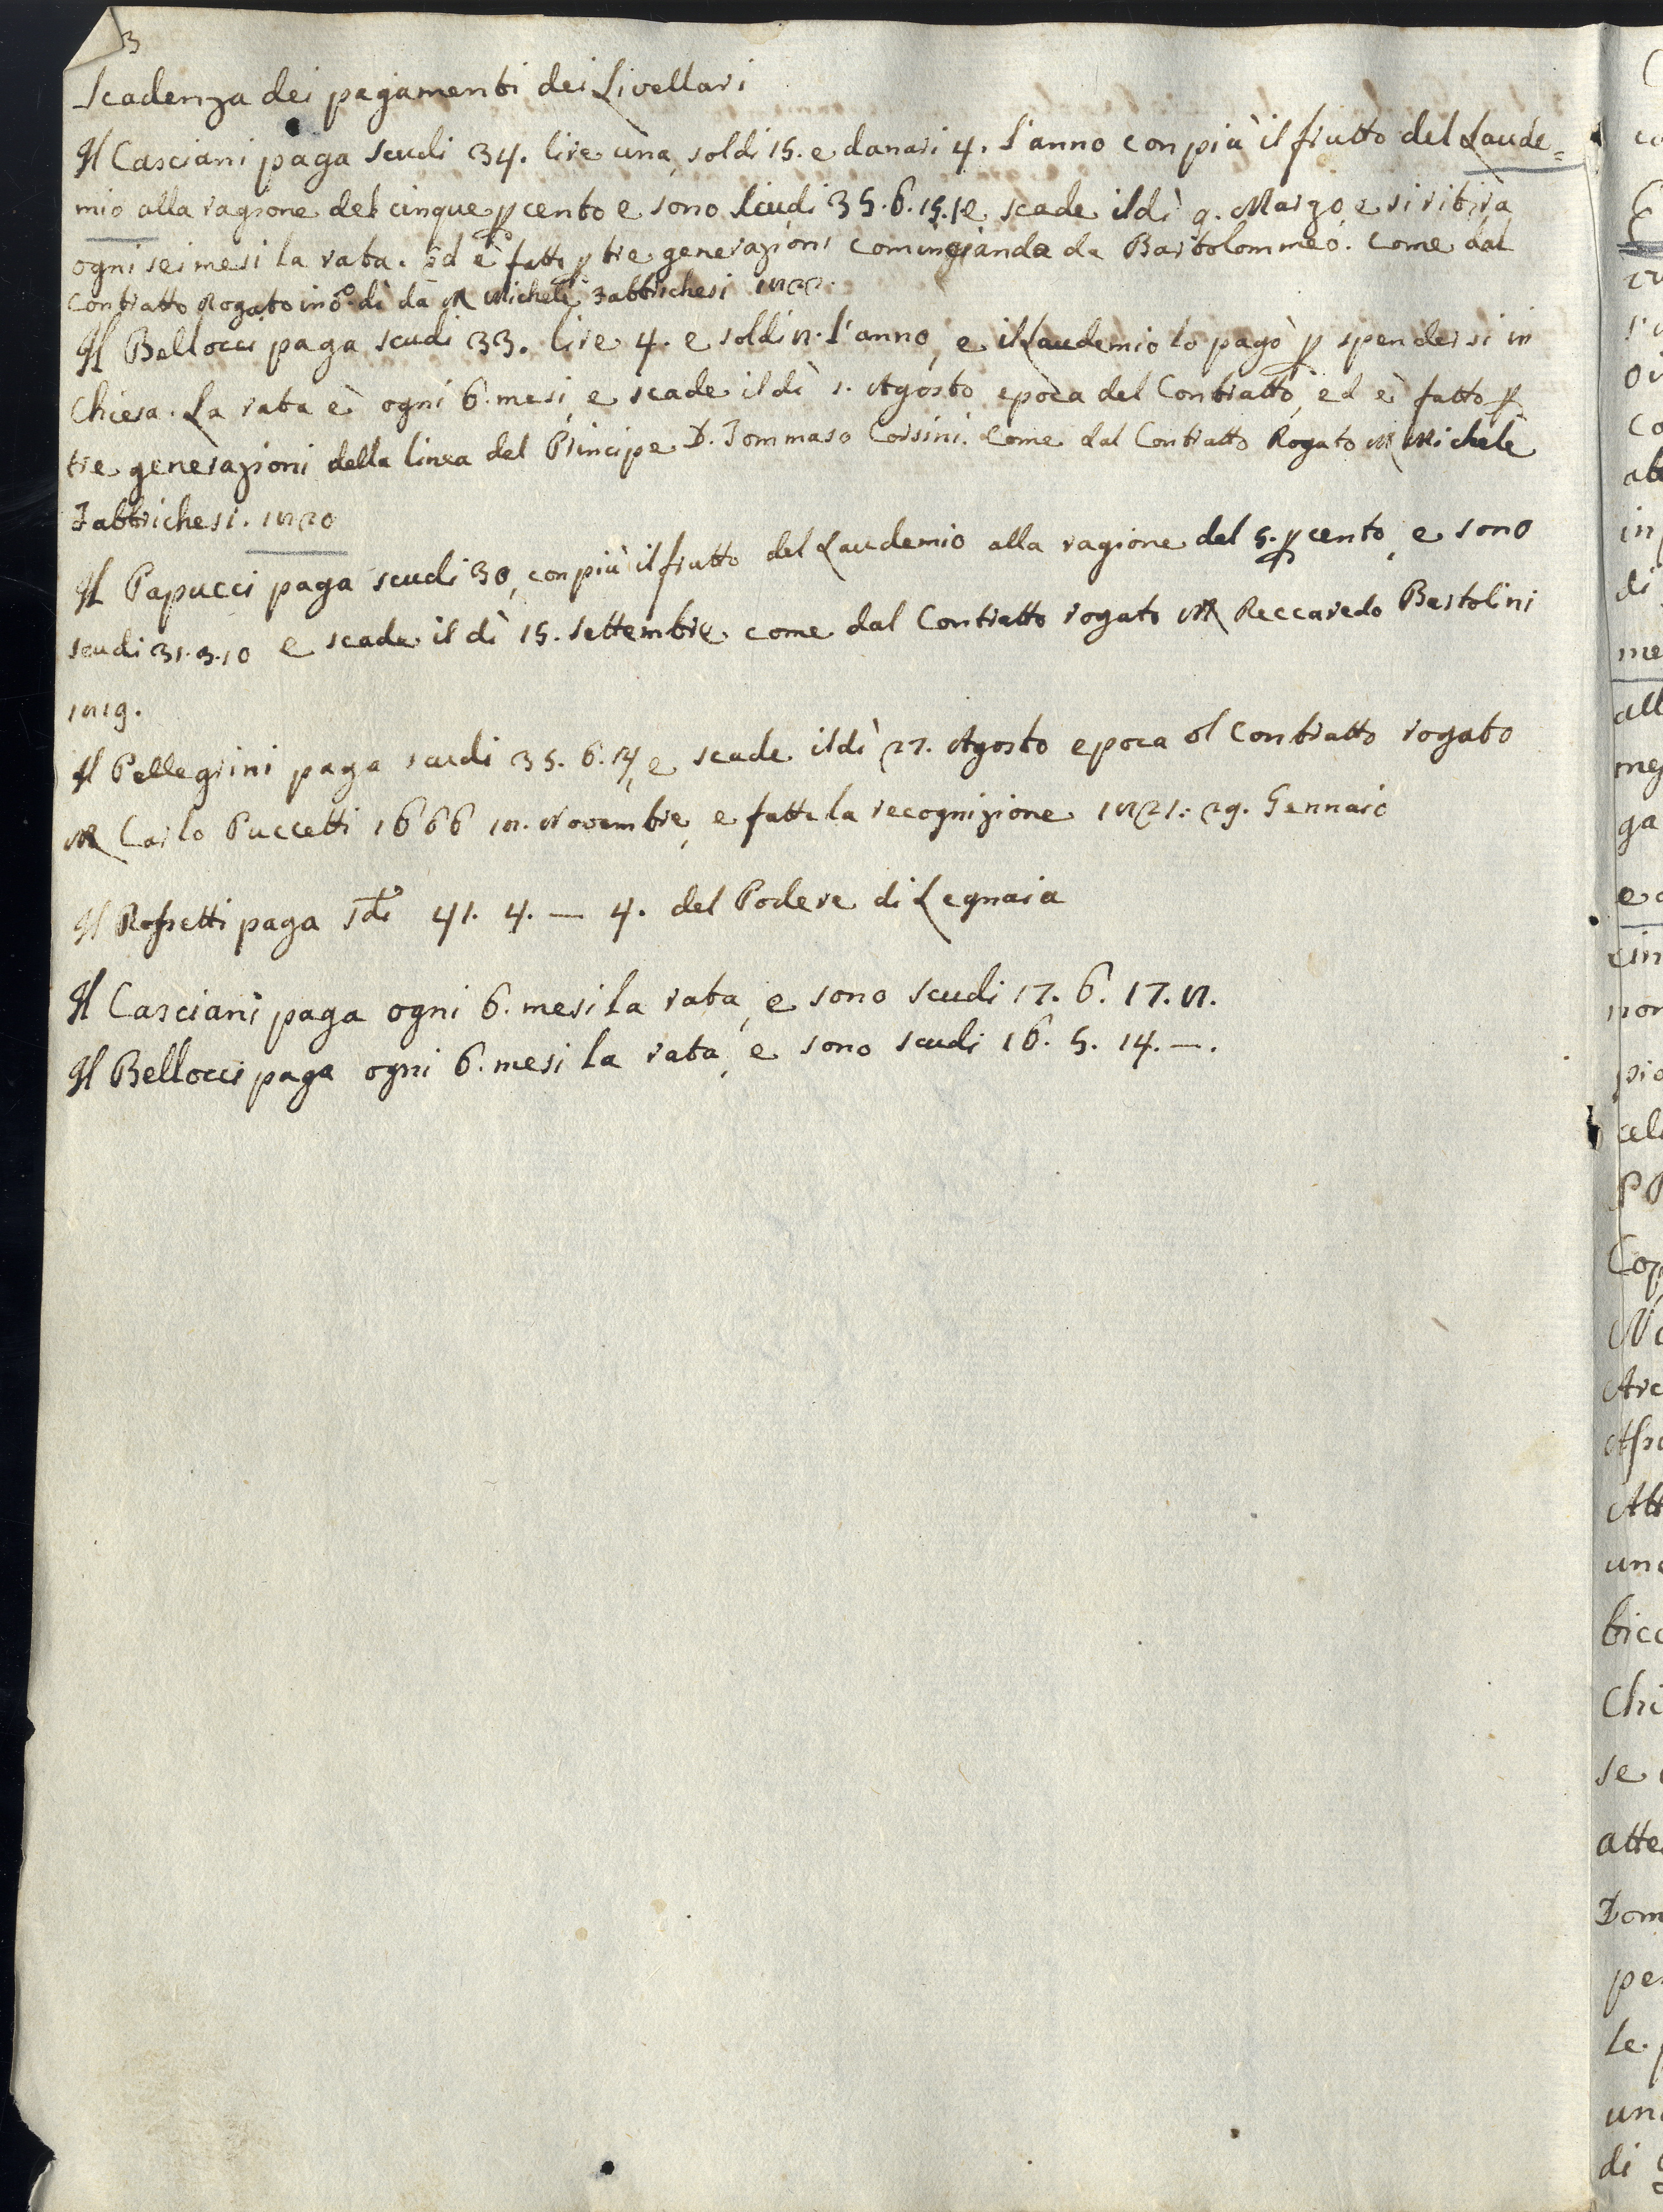 3
Scadenza dei pagamenti dei Livellari
Il Casciani paga scudi 34. lire una, soldi 15. e danari 4. l'anno con più il frutto del Laude=
mio alla ragione del cinque p cento e sono scudi 35.6.15.4 e scade il dì 9. Marzo, e si ritira
ogni sei mesi la rata. Ed è fatto p tre generazioni cominciando da Bartolommeo. Come dal
Contratto Rogato in d.o dì da M Michele Fabbrichesi 1822.
Il Bellocci paga scudi 33. lire 4. e soldi 8. l'anno, e il Laudemio lo pagò p spendersi in
Chiesa. La rata è ogni 6. mesi, e scade il dì 1. Agosto epoca del Contratto, ed è fatto p
tre generazioni della linea del Principe D. Tommaso Corsini. Come dal Contratto Rogato M Michele
Fabbrichesi. 1820
Il Papucci paga scudi 30, con più il frutto del Laudemio alla ragione del 5. p cento, e sono
scudi 31.3.10 e scade il dì 15. Settembre come dal Contratto rogato M Reccaredo Bartolini
1819.
Il Pellegrini paga scudi 35. 6. 14, e scade il dì 27. Agosto epoca dl Contratto rogato
M Carlo Puccetti 1666 18. Novembre, e fatta la recognizione 1821: 29. Gennaio
Il Rossetti paga Sdi 41. 4. — 4. del Podere di Legnaia
Il Casciani paga ogni 6. mesi la rata, e sono scudi 17. 6. 17. 8.
Il Bellocci paga ogni 6. mesi la rata, e sono scudi 16. 5. 14. —.